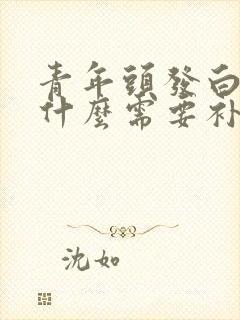 青年頭發白
什麼需要补
沈如